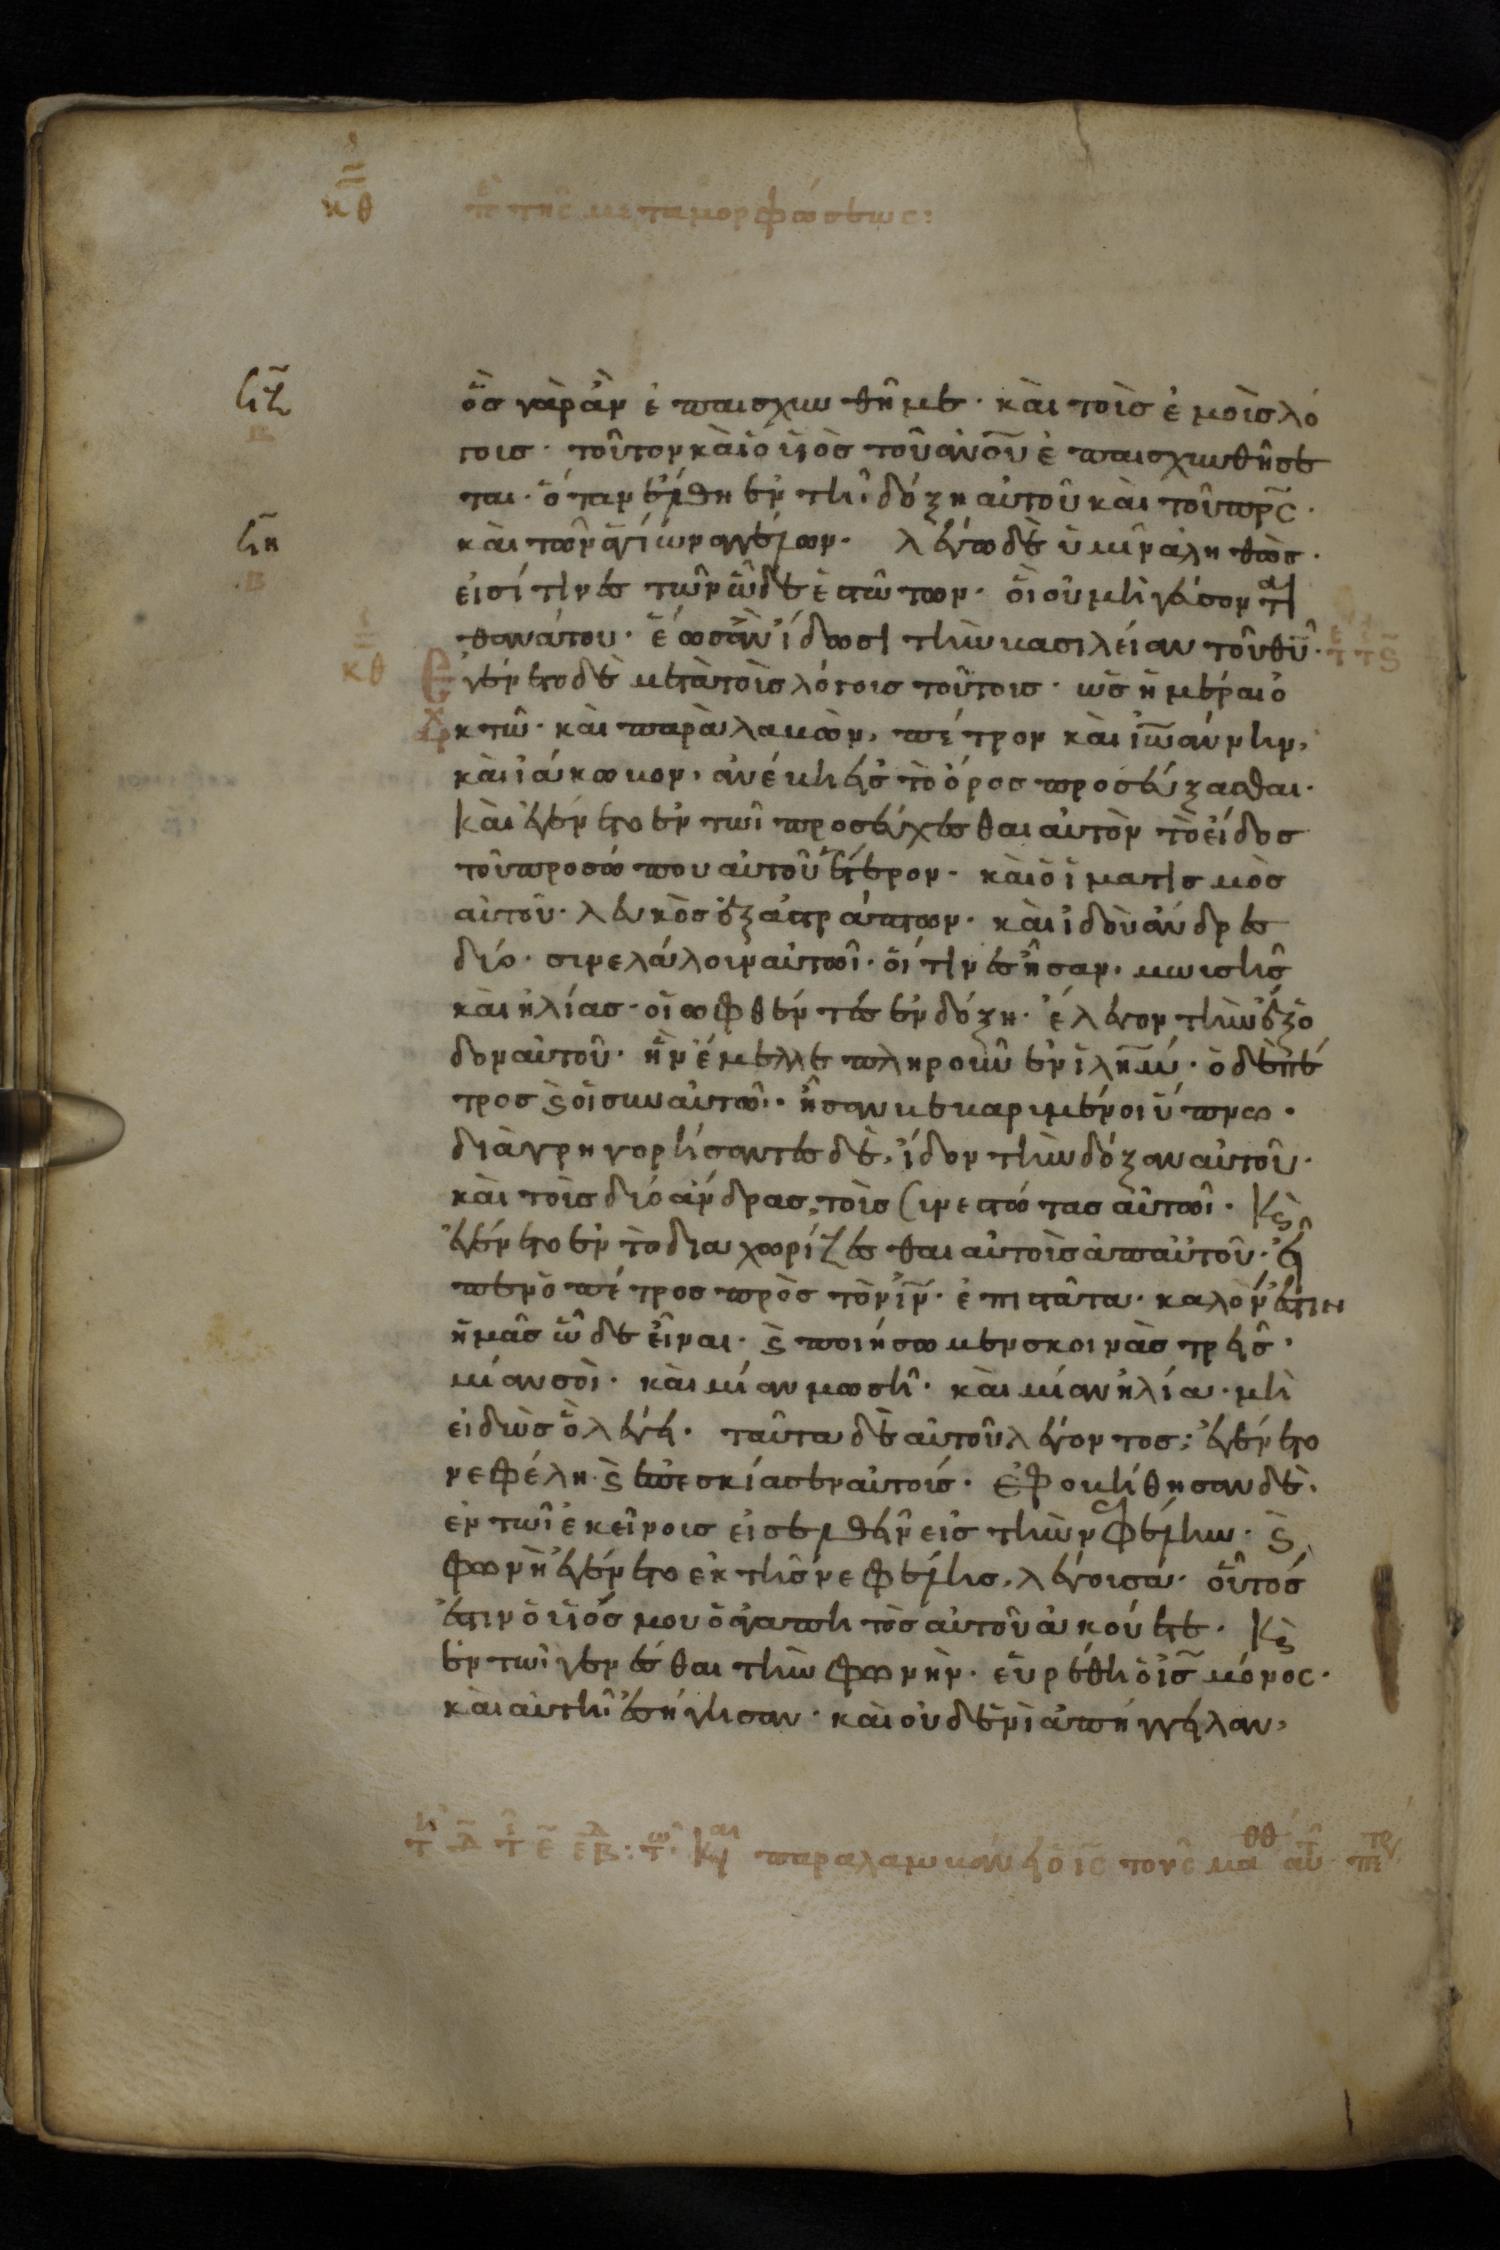 κθ π τῆς μεταμορφώσεως:
ὃς γὰρ ἂν ἐπαισχυνθῆ με· καὶ τοὶς ἐμοὶς λό
γοις· τοῦτον καὶ ὁ ϊιὸς τοῦ ἀνο̅υ ἐπαισχυνθῆσε
ται· ὅταν ἔλθη ἐν τῆ δόξη αὐτοῦ καὶ τοῦ πρ̅ς·
καὶ τῶν ἁγίων ἀγγέλων· λέγω δὲ ὑμῖν ἀληθῶς·
εἰσί τινες τῶν ὧδε ἑστῶτων· οἳ οὐ μὴ γεύσονται
θανάτου· ἕως ἂν ἴδωσι τὴν βασιλείαν τοῦ θυ̅·
κθ Ἐγένετο δὲ μετὰ τοὶς λόγοις τοῦτοις· ὡς ἡμέραι ὀ
κτῶ· καὶ παρὰλαβὼν, πέτρον καὶ ἰω̅άννην,
καὶ ἰάκωβον, ἀνέβη εἰς τὸ ὄρος προσεύξασθαι·
Καὶ ἐγένετο ἐν τῶι προσεύχεσθαι αὐτὸν τὸ εἶδος
τοῦ προσώπου αὐτοῦ ἕτερον· καὶ ὁ ἱματισμὸς
αὐτοῦ· λευκὸς ἐξαστράπτων· καὶ ἰδοὺ ἄνδρες
διό· σινελάλουν αὐτῶι· οἵτινες ἦσαν, μωισῆς
καὶ ἠλίας· οἳ ὠφθέντες ἐν δόξη· ἔλεγον τὴν ἔξο
δον αὐτοῦ· ἣν ἔμελλε πληροῦν ἐν ἰλη̅μ· ὁ δὲ πέ
τρος ϗ οἱ σὺν αὐτῶι· ἦσαν βεβαριμένοι ὕπνω·
διὰγρηγορήσαντες δὲ, ἴδον τὴν δόξαν αὐτοῦ·
καὶ τοὶς διό ἄνδρας, τοὶς σινεστώτας αὐτῶι· Κϗ
ἐγένετο ἐν τὸ διαχωρίζεσθαι αὐτοὶς ἀπ αὐτοῦ· εἶ
πεν ὁ πέτρος πρὸς τὸν ἰν̅· ἐπιστᾶτα· καλὸν ἐστιν
ἡμᾶς ὧδε εἶναι· ϗ ποιήσωμεν σκοινὰς τρεῖς·
μίαν σοὶ· καὶ μίαν μωσῆ· καὶ μίαν ἠλία· μὴ
εἰδὼς ὃ λέγει· ταῦτα δὲ αὐτοῦ λέγοντος; ἐγένετο
νεφέλη· ϗ ἐπεσκίασεν αὐτοίς· Ἐφοβήθησαν δὲ·
ἐν τῶι ἐκεῖνοις εἰσελθεῖν εἰς τὴν νεφέλην· ϗ
φωνὴ ἐγένετο ἐκ τῆς νεφέλης, λέγοισα· οὗτός
ἐστιν ὁ ϊιός μου ὁ ἀγαπητὸς αὐτοῦ ἀκούετε· Κϗ
ἐν τῶι γενέσθαι τὴν φωνὴν· εὑρέθη ὁ ἰς̅ μόνος·
καὶ αὐτῆ ἐσήγησαν· καὶ οὐδενὶ ἀπήγγειλαν,
παραλαμβάνει ὁ ις̅ τους μαθθ αυτ